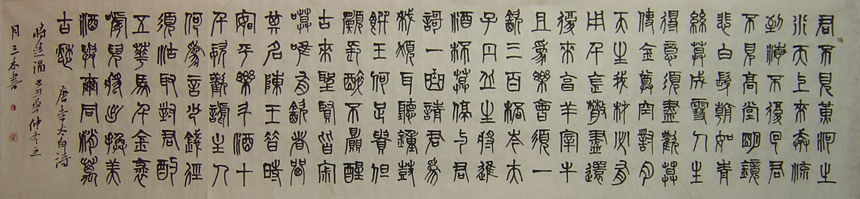 君不見黃河之
水天上來奔流
到海不復回君
不見高堂明鏡
悲白髮朝如青
絲暮成雪人生
得意須盡歡莫
使金尊空對月
天生我材必有
用千金散盡還
復來烹羊宰牛
且為樂會須一
飲三百杯岑夫
子丹丘生將進
酒杯莫停與君
歌一曲請君為
我傾耳聽鐘鼓
饌玉何足貴但
願長醉不願醒
古來聖賢皆寂
寞唯有飲者留
其名陳王昔時
宴平樂斗酒十
千恣歡謔主人
何為言少錢徑
須沽取對君酌
五華馬千金裘
嘑兒將出換美
酒與爾同消萬
古愁
唐李太白詩
將進酒己丑年仲春之
月三本書